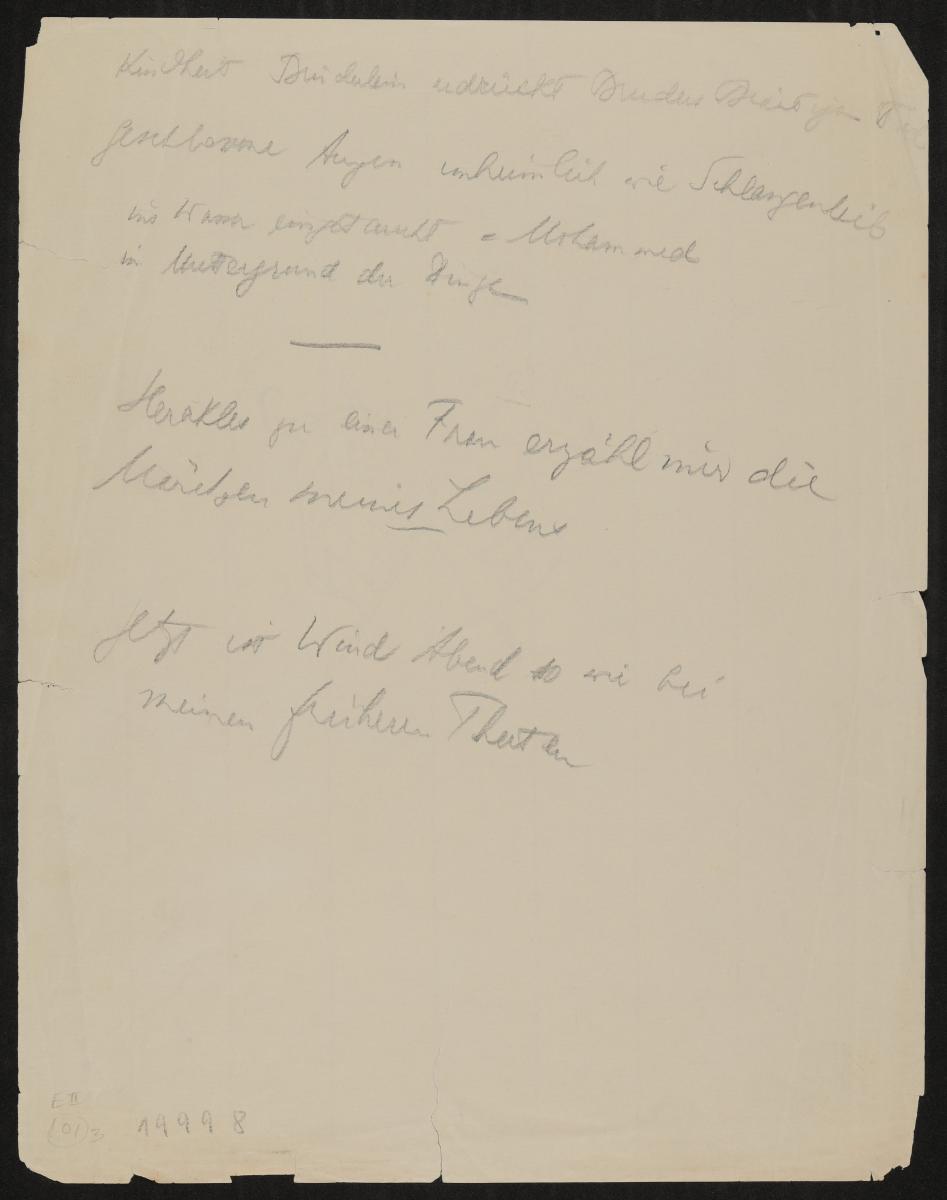 Kindheit Brüderlein erdrückt Bruders
geschlossne Augen unheimlich wie Schlangenleib
ins Wasser eingetaucht = Mohammed
im Untergrund der Dinge
Herakles zu einer Frau erzähl mir die
Märchen meines Lebens
Jetzt ist Wind Abend so wie bei
meinen früheren Thaten
E II
(01)3 19998